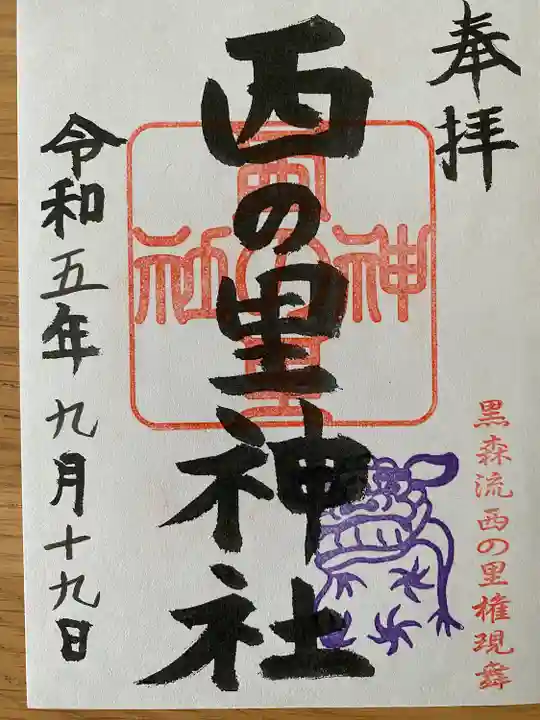 奉拝
黒森流西の里権現舞
西の里神社
西の里神社
令和五年九月十九日